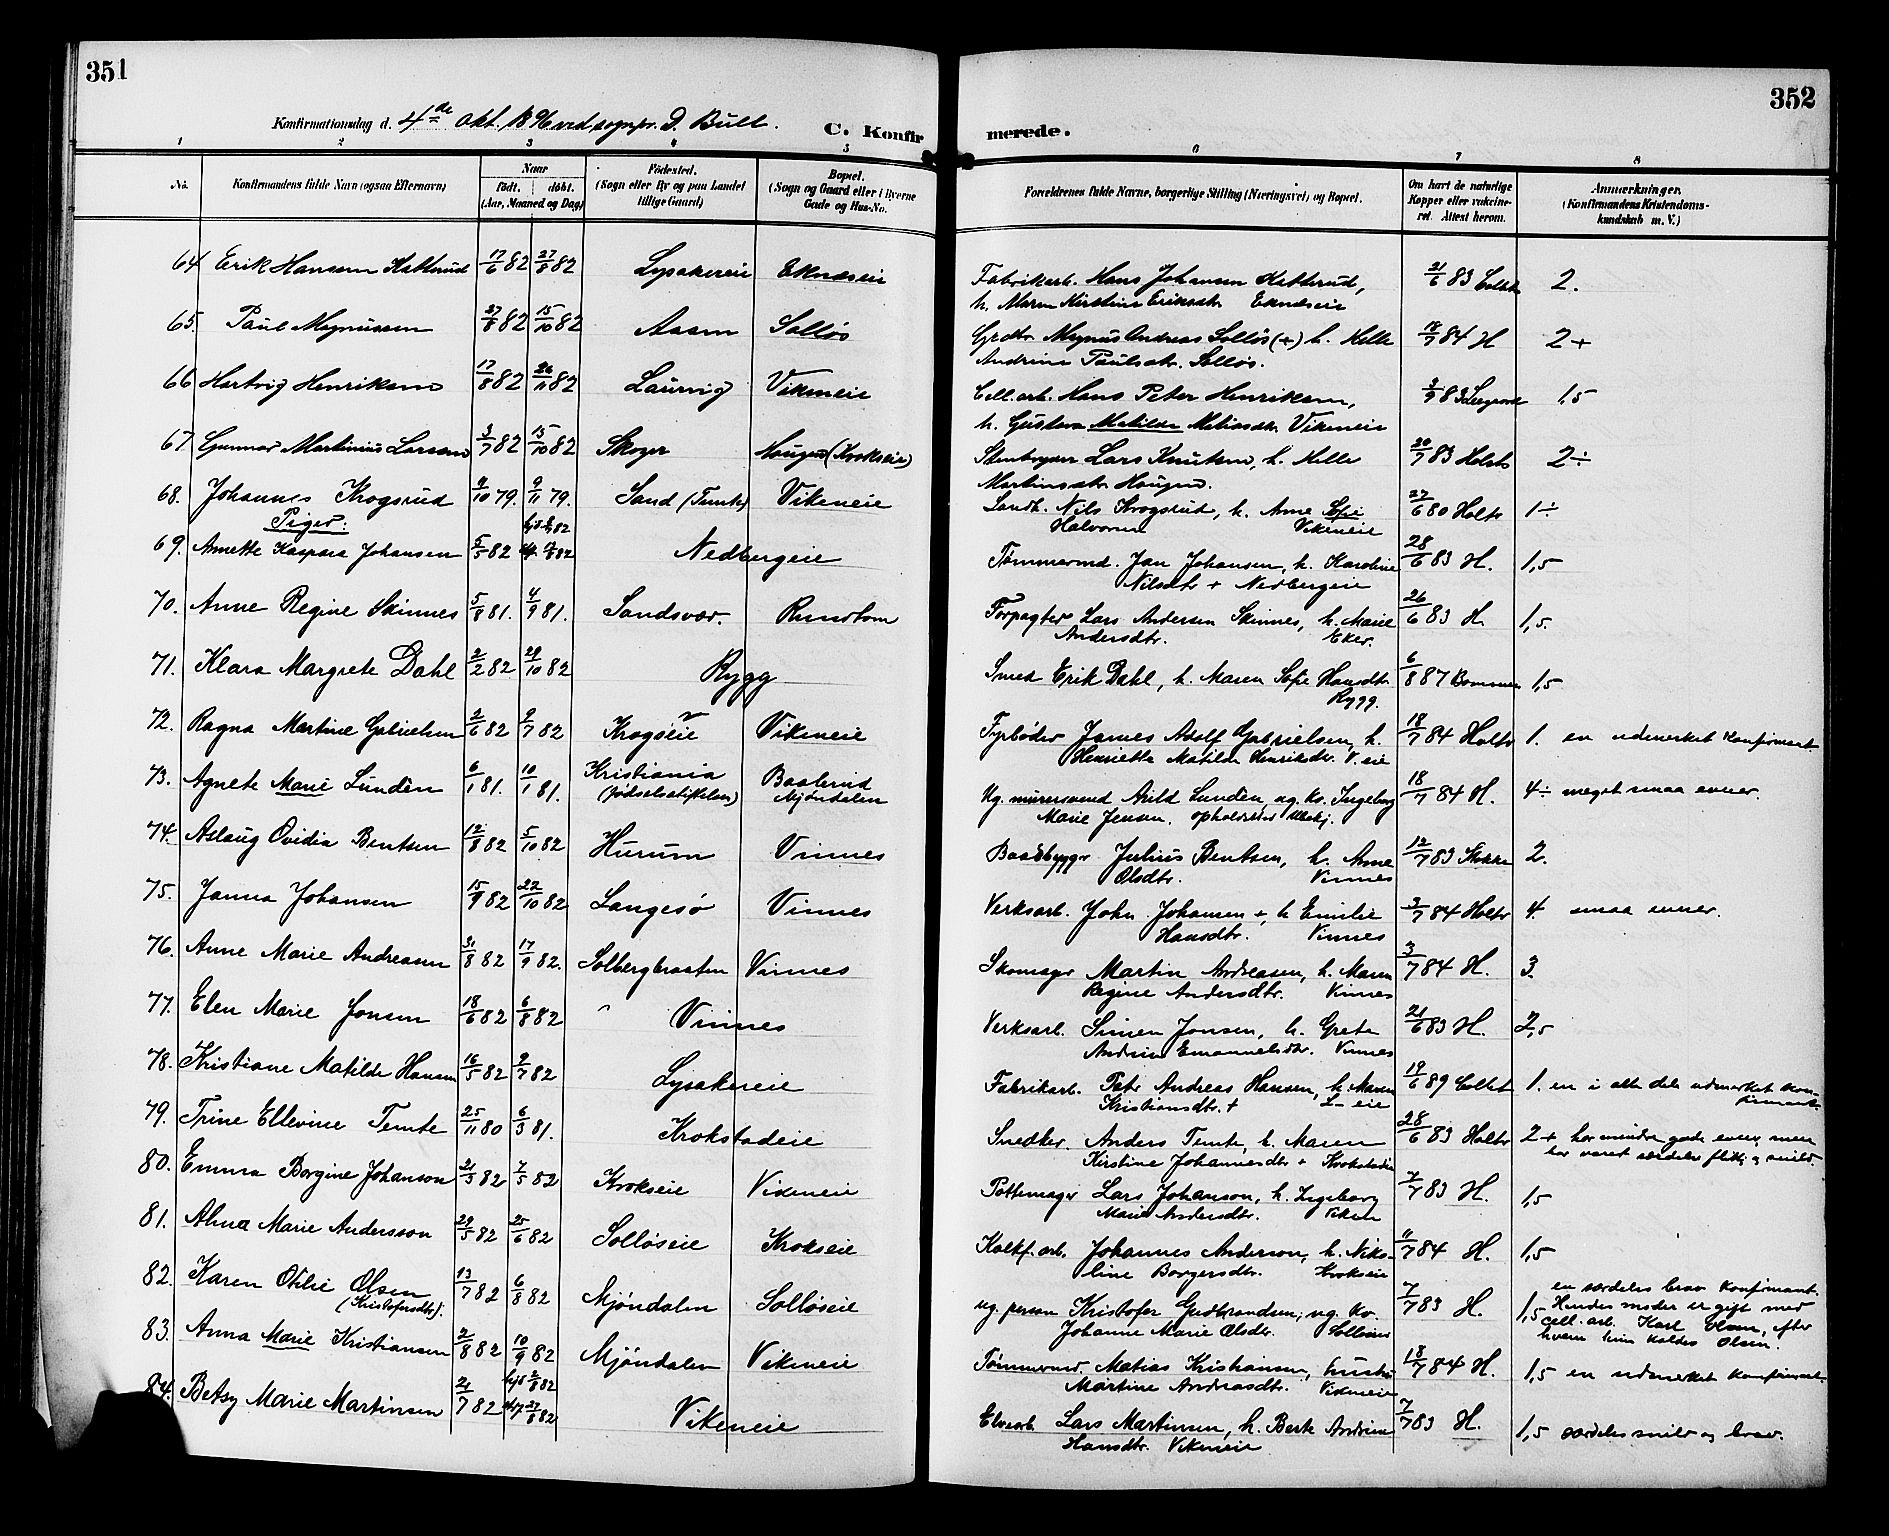 351
352
Konfirmationsdag d. 4de Okt. 1896 ved sognpr. D. Bull. C. Konfirmerede.
1 2 3 4 5 6 7 8
No. Konfirmandens fulde Navn (ogsaa Efternavn) Naar født. døbt. (Aar, Maaned og Dag) Fødested. (Sogn eller By og paa Landet tillige Gaard) Bopæl. (Sogn og Gaard eller i Byerne Gade og Hus-No. Forældrenes fulde Navne, borgerlige Stilling (Næringsvei) og Bopæl. Om havt de naturlige Kopper eller vakcineret. Attest herom. Anmærkninger. (Konfirmandens Kristendomskundskab m. V.)
64 Erik Hansen Katterud 17/6 82 27/8 82 Lysakereie Eknæseie Fabrikarb. Hans Johansen Katterud, 21/6 83 2.
h. Maren Kirstine Eriksdtr. Eknæseie
65. Paul Magnussen 27/8 82 15/10 82 Aasen Solløs Grdbr. Magnus Andreas Solløs (+) h. Helle 18/7 84 H 2+
Andrine Paulsdtr. Solløs.
66 Hartvig Henriksen 17/8 82 26/11 82 Laurvig Vikeneie Cell. arb. Hans Peter Henriksen, 1,5
h. Gustava Matilde Vikeneie
67. Gunnar Martinius Larsen 3/7 82 15/10 82 Skoger Haugen (Krokseie) Lars Knutsen, h. Helle 20/7 83 Holts 2÷
Martinsdtr. Haugen.
68. Johannes Krogsrud 9/10 79. 9/11 79. Sand (Temte) Vikeneie Sandh. Nils Krogsrud, h. Anne Sofie 27/6 80 Holts 1÷
Piger: Halvorsen Vikeneie
69. Annette Kaspara Johansen 5/5 82 Nedbergeie Tømmermd. Jan Johansen, h. Karoline 28/6 83 H. 1,5
Nilsdtr + Nedbergeie
70. Anne Regine Skinnes 5/8 81. 4/9 81. Sandsvær. Rundtom Forpagter Lars Andersen Skinnes, h. Marie 26/6 83 H. 1,5.
Andersdtr. Eker.
71. Klara Margrete Dahl 2/2 82 29/10 82 Rygg Smed Erik Dahl, h. Maren Sofie Hansdtr 6/8 87 Bommen 1,5
Rygg.
72. Ragna Martine Gabrielsen 2/6 82 9/7 82 Krogseie Vikeneie Fyrbøder James Adolf Gabrielsen, h. 18/7 84 Holts 1. en udmerket Konfirmant
Henriette Matilde Henriksdtr. V.eie
73. Agnete Marie Lunden 6/1 81. 10/1 81. Kristiania (fødselsstiftelsen) Baalerud Mjøndalen Ug. murersvend Arild Lunden, ug. Kv. Ingeborg 18/7 84 H. 4÷ meget smaa evner.
Marie Jensen.
74. Aslaug Ovidia Bentsen 12/8 82 5/10 82 Hurum Vinnes Baadbygger Julius Bentsen, h. Anne 12/7 83 Stokke 2.
Olsdtr. Vinnes
75. Janna Johansen 15/9 82 22/10 82 Langesø Vinnes Verksarb. John Johansen +, h Emilie 3/7 84 Holts 4. smaa evner.
Hansdtr. Vinnes
76. Anne Marie Andreasen 31/8 82 17/9 82. Solbergbraaten Vinnes Skomager Martin Andreasen, h. Maren 3/7 84 H. 3.
Regine Andersdtr. Vinnes
77. Elen Marie Jonsen 18/6 82 6/8 82 Vinnes Verksarb. Simen Jonsen, h. Grete 21/6 83 H. 2,5
Andrine Emanuelsdtr. Vinnes
78. Kristiane Matilde Hansen 16/5 82 9/7 82 Lysakereie Fabrikarb. Peter Andreas Hansen, h. Maren 19/6 89 1. en i alle dele udmerket konfirmant.
Kristiansdtr. + L-eie
79. Trine Ellevine Temte 25/11 80 6/3 81. Krokstadeie Snedker. Anders Temte, h. Maren 28/6 83 Holts 2+ har mindre gode evner, men
Kirstine Johannesdtr + Krokstadeie har været særdeles flittig og snild.
80. Emma Borgine Johanson 21/3 82 7/5 82 Krokseie Vikeneie Pottemager Lars Johanson, h. Ingeborg 7/7 83 H. 1,5
Marie Andersdtr. Viken
81. Alma Marie Andersson 29/5 82 25/6 82 Solløseie Krokseie Kalkf. arb. Johannes Anderson, h. Nikoline 11/7 84 H. 1,5
Borgersdtr. Krokseie
82. Karen Otilie Olsen (Kristofersdtr). 13/7 82 6/8 82 Mjøndalen Solløseie ug. person Kristofer Gudbrandsen, ug. Kv. 7/7 83 H. 1,5 en særdeles brav konfirmant. Hendes moder er gift med
Johanne Marie Olsdtr. Solløseie cell. arb. Karl Olsen, efter hvem hun kaldes Olsen.
83. Anna Marie Kristiansen 2/8 82 10/9 82 Mjøndalen Vikeneie Tømmermd. Matias Kristiansen, hustr 18/7 84 H. 1,5 en udmerket konfirmant.
Martine Andreasdtr. Vikeneie
84. Betsy Marie Martinsen 2/7 82 Vikeneie Elvearb. Lars Martinsen, h. Berte Andrine 7/7 83 H. 1,5 særdeles snild og brav.
Hansdtr. Vikeneie